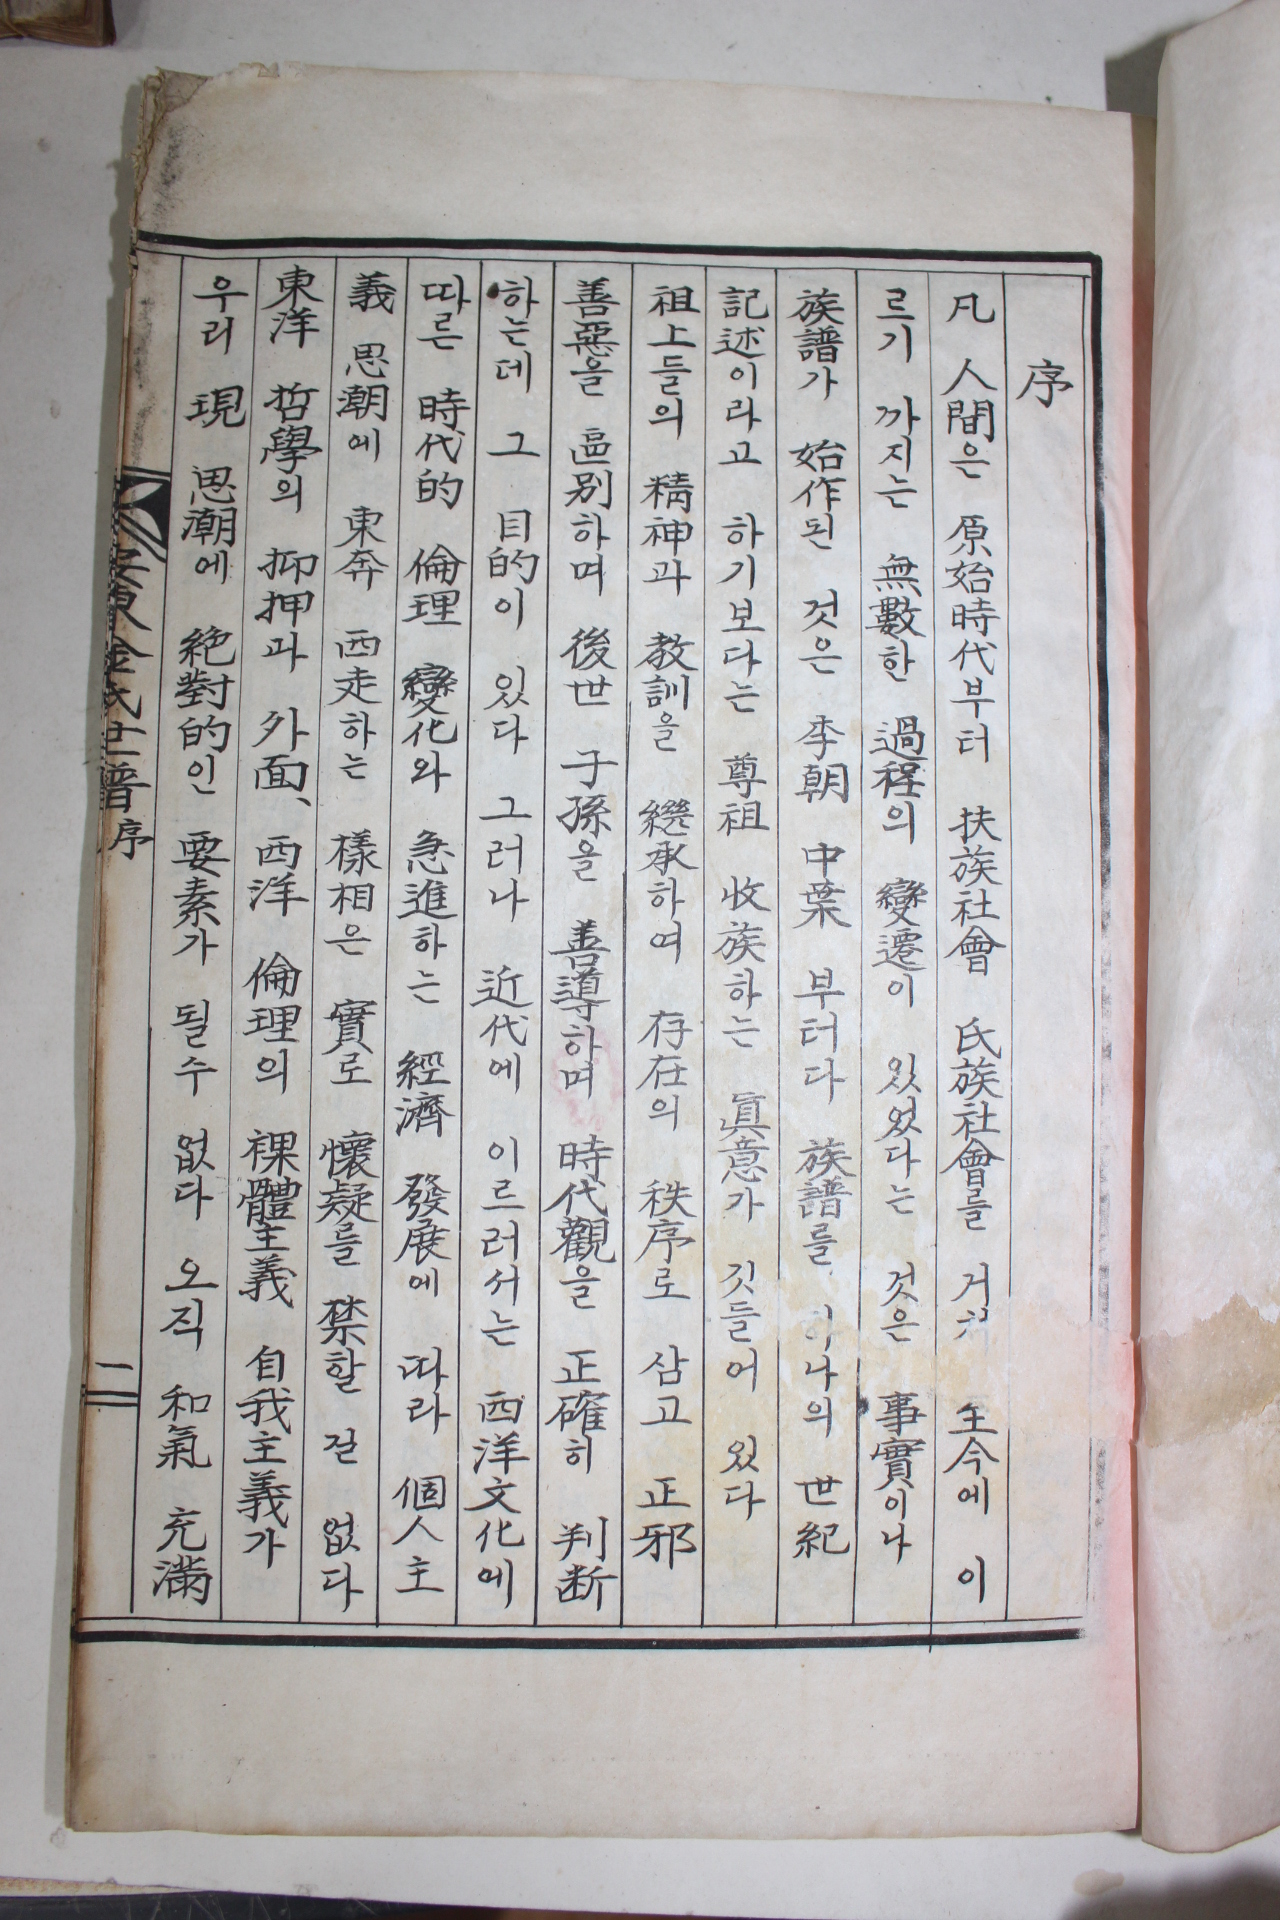 序
凡 人間은 原始時代부터 扶族社會 氏族社會를 거쳐 至今에 이
르기 까지는 無數한 過程의 變遷이 있었다는 것은 事實이나
族譜가 始作된 것은 李朝 中葉 부터다 族譜를 하나의 世紀
記述이라고 하기보다는 尊祖 收族하는 眞意가 깃들어 있다
祖上들의 精神과 敎訓을 繼承하여 存在의 秩序로 삼고 正邪
善惡을 區別하며 後世 子孫을 善導하며 時代觀을 正確히 判断
하는데 그 目的이 있다 그러나 近代에 이르러서는 西洋文化에
따른 時代的 倫理 變化와 急進하는 經濟 發展에 따라 個人主
義 思潮에 東奔 西走하는 樣相은 實로 懷疑를 禁할 길 없다
東洋 哲學의 抑押과 外面、西洋 倫理의 裸體主義 自我主義가
우리 現 思潮에 絶對的인 要素가 될수 없다 오직 和氣 充滿
安東金氏世譜 序 一